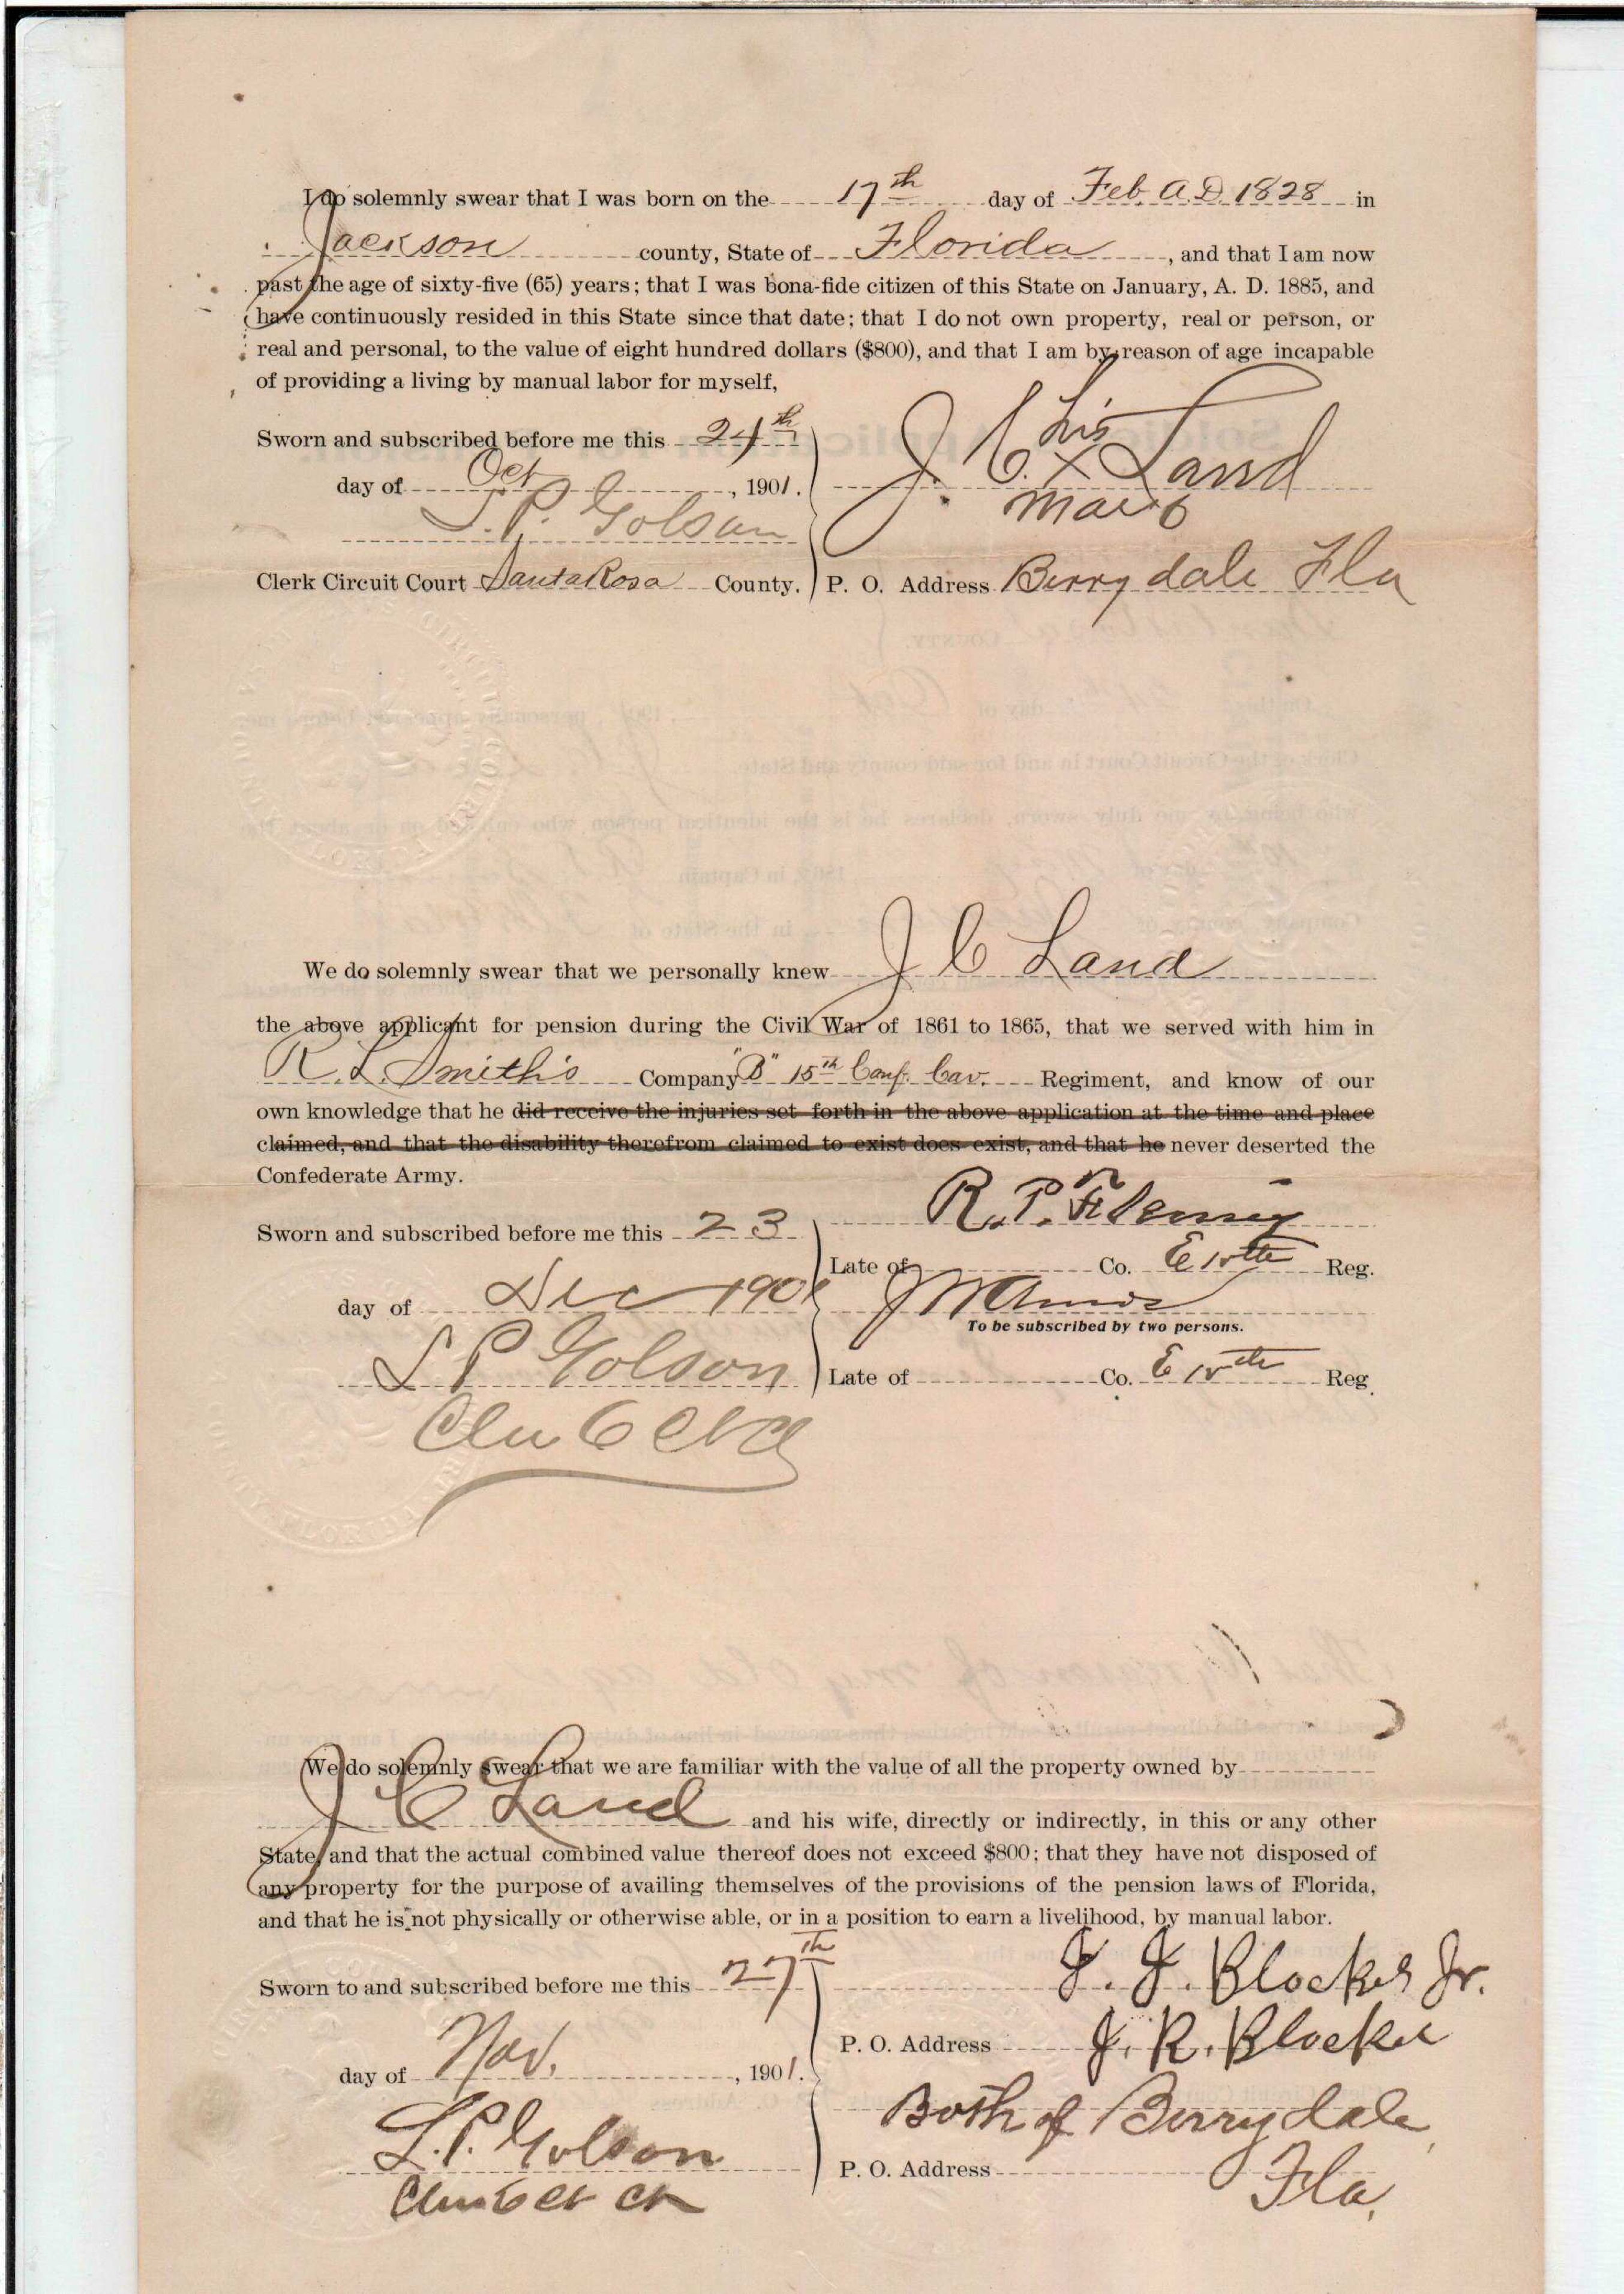 I do solemnly swear that I was born on the 17th day of Feb. A.D. 1828 in
Jackson county, State of Florida, and that I am now
past the age of sixty-five (65) years; that I was bona-fide citizen of this State on January, A. D. 1885, and
have continuously resided in this State since that date; that I do not own property, real or person, or
real and personal, to the value of eight hundred dollars ($800), and that I am by reason of age incapable
of providing a living by manual labor for myself,
Sworn and subscribed before me this 24th
day of Oct, 1901.
his
J. C. X Land
mark
Clerk Circuit Court Santa Rosa County.
P. O. Address Berrydale Fla
We do solemnly swear that we personally knew J C Land
the above applicant for pension during the Civil War of 1861 to 1865, that we served with him in
R. L. Smith's Company "B" 15th Conf. Cav. Regiment, and know of our
own knowledge that he did receive the injuries set forth in the above application at the time and place
claimed, and that the disability therefrom claimed to exist does exist, and that he never deserted the
Confederate Army.
Sworn and subscribed before me this 23
day of Dec 1901
L P Golson
R. P.
Late of Co. E 15th Reg.
J M Amos
To be subscribed by two persons.
Late of Co. E 15th Reg.
We do solemnly swear that we are familiar with the value of all the property owned by
J C Land and his wife, directly or indirectly, in this or any other
State, and that the actual combined value thereof does not exceed $800; that they have not disposed of
any property for the purpose of availing themselves of the provisions of the pension laws of Florida,
and that he is not physically or otherwise able, or in a position to earn a livelihood, by manual labor.
Sworn to and subscribed before me this 27th
day of Nov., 1901.
L. P. Golson
J. J. Blocker Jr.
P. O. Address J. R. Blocker
Both of Berrydale,
P. O. Address Fla.